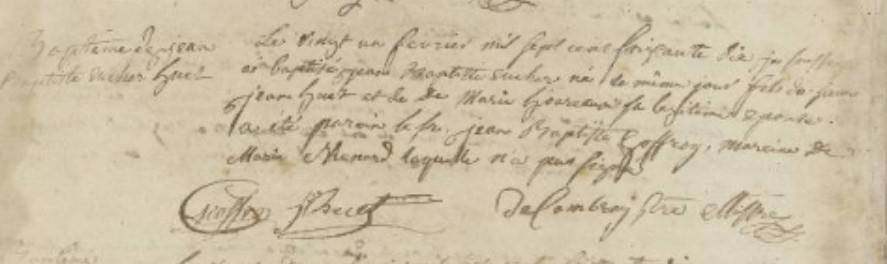 Baptême de jean
Baptiste eucher huet
Le vingt un fevrier mil sept cent soixante dix je soussigné
ai baptisé jean Baptiste eucher né le même jour fils de jean
jean huet et de De Marie sa legitime epouse.
a été parain le sr. jean Baptiste Goffroy, maraine De
Marie Menard laquelle n'a pas signé
Geoffroy JHuet De Combray ptre Misre